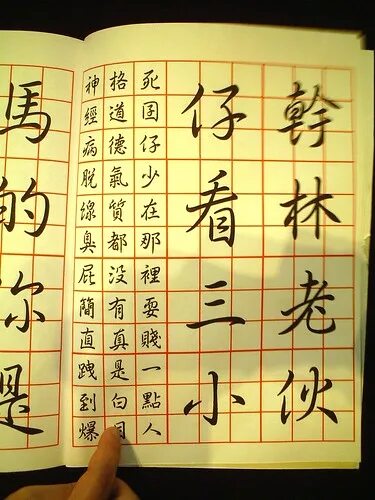 幹林老伙
仔看三小
死囝仔少在那裡耍賤一點人
格道德氣質都没有真是白目
神經病脫線臭屁簡直跩到爆
馬的你是